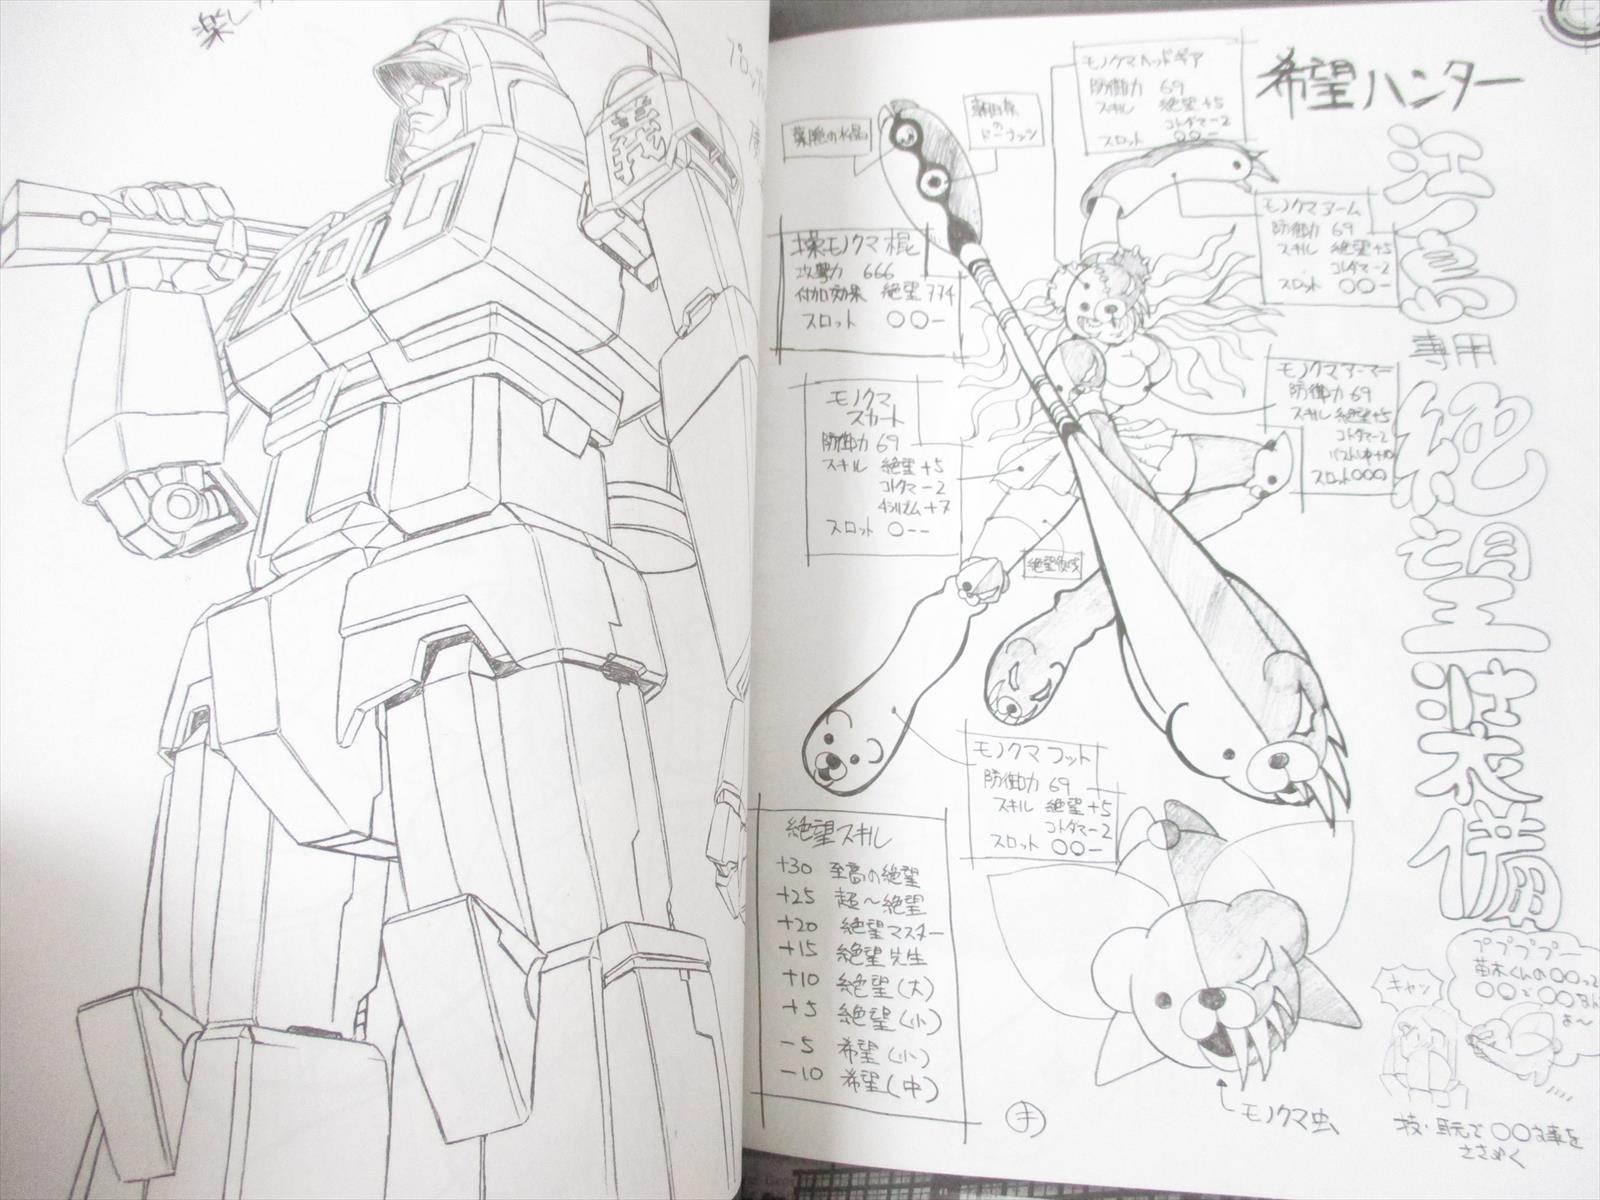 楽し
希望ハンター
江ノ島
専用
絶望装備
モノクマヘッドギア
防御力 69
スキル 絶望+5
コトダマ-2
スロット 〇〇-
葉隠の水晶
朝日奈
の
ドーナッツ
モノクマアーム
防御力 69
スキル 絶望+5
コトダマ-2
スロット 〇〇-
操モノクマ棍
攻撃力 666
付加効果 絶望774
スロット 〇〇-
モノクマアーマー
防御力 69
スキル 絶望+5
コトダマ-2
スロット〇〇〇
モノクマ
スカート
防御力 69
スキル 絶望+5
コトダマ-2
スロット 〇--
モノクマフット
防御力 69
スキル 絶望+5
コトダマ-2
スロット 〇〇-
絶望スキル
+30 至高の絶望
+25 超〜絶望
+20 絶望マスター
+15 絶望先生
+10 絶望(大)
+5 絶望(小)
-5 希望(小)
-10 希望(中)
モノクマ虫
キャッ
ププププー
苗木くんの〇〇って
〇〇で〇〇なん
よ〜
技・耳元で〇〇な事を
ささやく